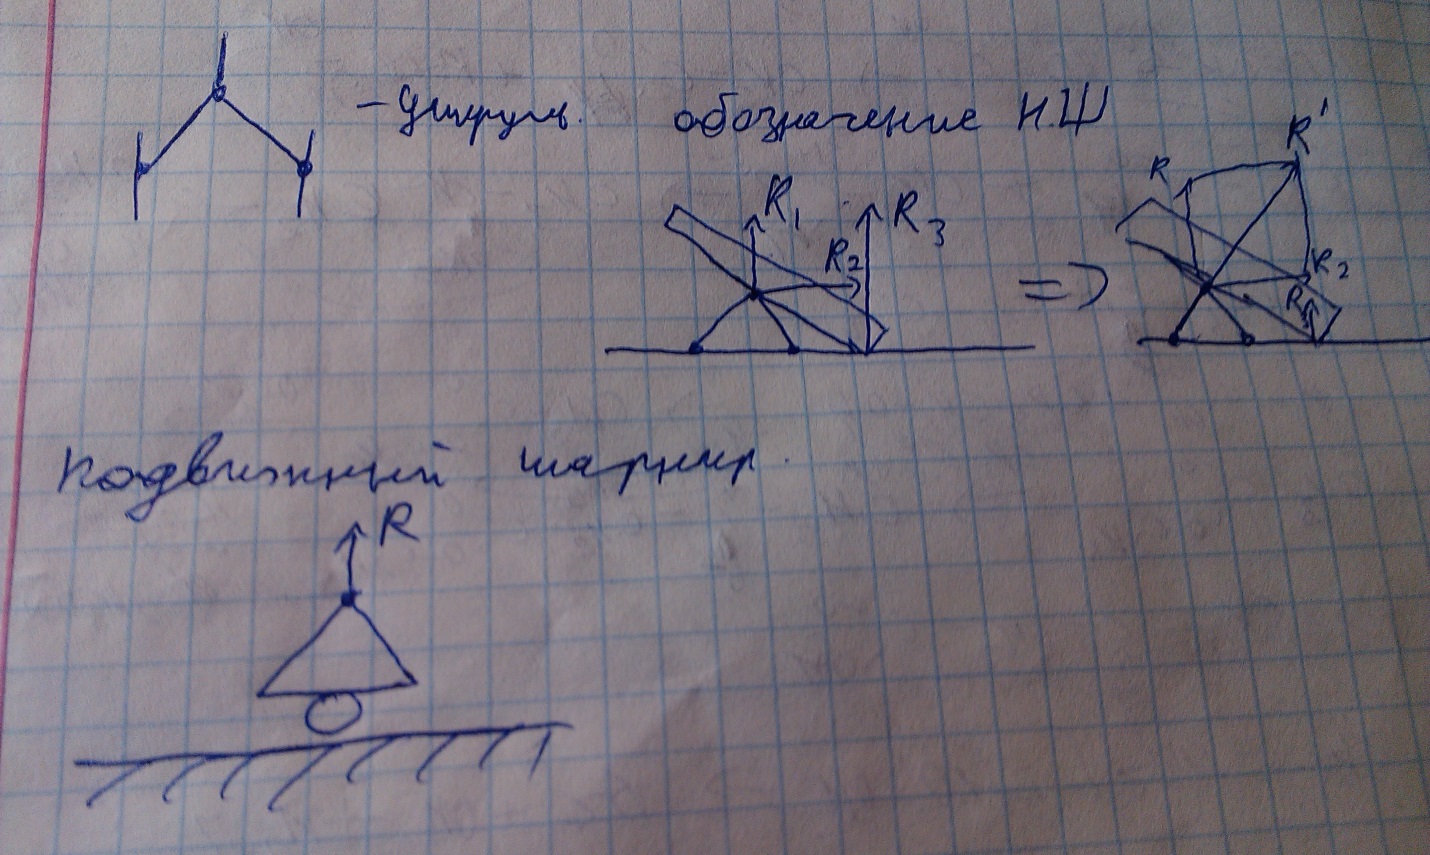 – Циркуль. обозначение Н.Ш
R₁ R₂ R₃ => R R' R₂ R₃
Подвижный шарнир.
R